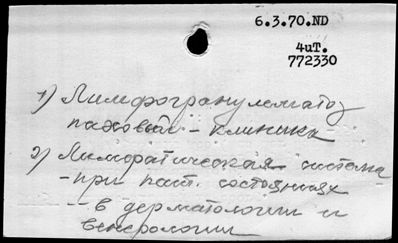 6.3.70.ND
4иТ.
772330
1) Лимфогранулематоз
паховый - клиника
2) Лимфатическая система
- при пат. состояниях
- в дерматологии и
венерологии